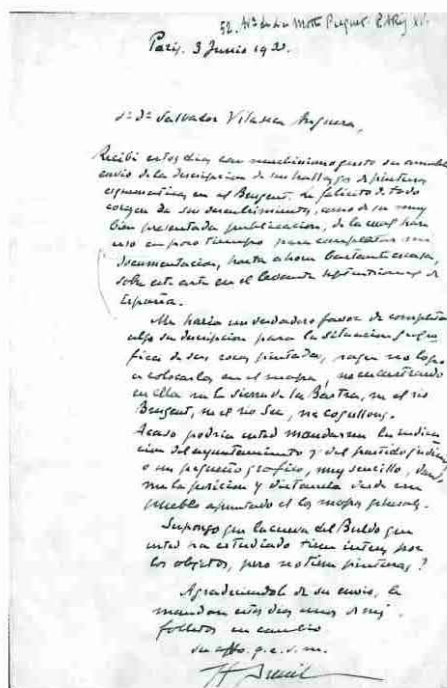 52, Ave de la Motte Picquet. PARIS XV.
Paris. 3 Junio 1920.
Sr Dr Salvador Vilaseca Anguera,
Recibí estos días con muchísimo gusto su amable
envio de la descripcion de sus hallazgos de pinturas
esquematicas en el Bergent. Le felicito de todo
corazon de su descubrimiento, como de su muy
bien presentada publicacion, de la cual haré
uso en poco tiempo para completar mi
documentacion, hasta ahora bastante escasa,
sobre este arte en el levante septentrional de
España.
Me haria un verdadero favor de completar
algo su descripcion para la situacion geogra
fica de sus rocas pintadas, pues no logro
a colocarlas en el mapa, no encontrando
en ella ni la sierra de la Bastra, ni el rio
Bergent, ni el rio Sec, ni Cogullons.
Acaso podria usted mandarme la indica
cion del ayuntamiento y del partido judicial
o un pequeño grafico, muy sencillo, dando
me la posicion y distancia desde un
pueblo apuntado en los mapas generales.
Supongo que la cueva del Buldo que
usted ha estudiado tiene interes por
los objetos, pero no tiene pinturas?
Agradeciendole de su envio, le
mandaré estos dias unos de mis
folletos en cambio
su affo. q. e. s. m.
H. Breuil